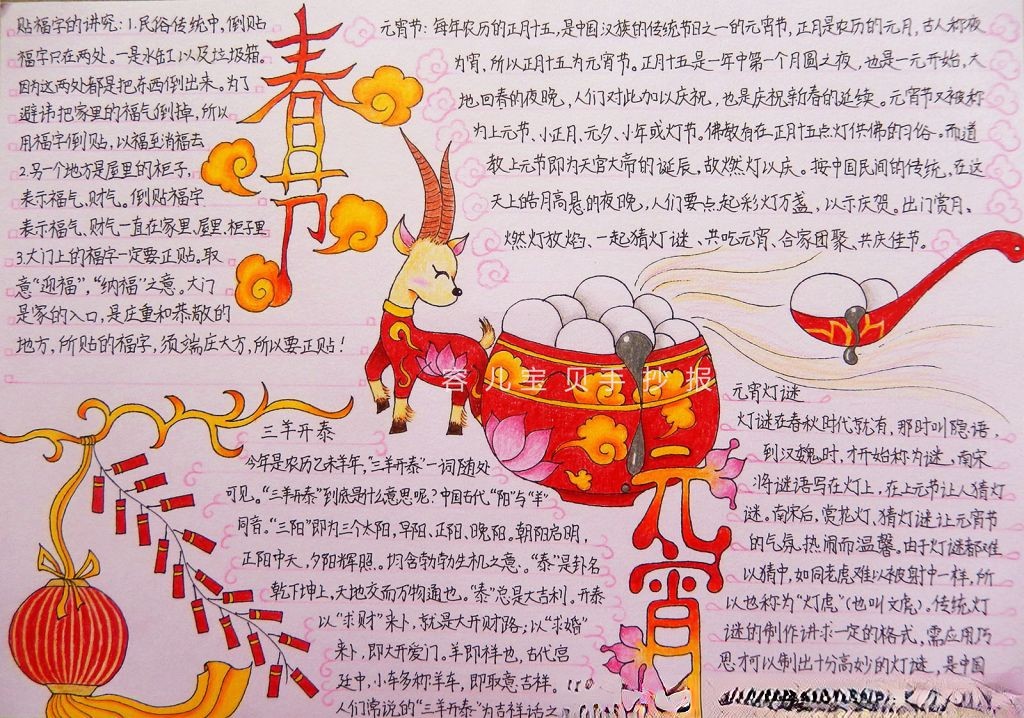 贴福字的讲究:1.民俗传统中,倒贴
福字只在两处。一是水缸以及垃圾箱。
因为这两处都是把东西倒出来。为了
避讳把家里的福气倒掉,所以
用福字倒贴,以福至消福去
2.另一个地方是屋里的柜子,
表示福气、财气。倒贴福字
表示福气、财气一直在家里、屋里、柜子里
3.大门上的福字一定要正贴。取
意“迎福”,“纳福”之意。大门
是家的入口,是庄重和恭敬的
地方,所贴的福字,须端庄大方,所以要正贴!
春节
元宵节:每年农历的正月十五,是中国汉族的传统节日之一的元宵节,正月是农历的元月,古人称夜
为宵、所以正月十五为元宵节。正月十五是一年中第一个月圆之夜、也是一元开始,大
地回春的夜晚,人们对此加以庆祝,也是庆祝新春的延续。元宵节又被称
为上元节、小正月、元夕、小年或灯节。佛教有在正月十五点灯供佛的习俗。而道
教上元节即为天官大帝的诞辰,故燃灯以庆。按中国民间的传统,在这
天上皓月高悬的夜晚,人们要点起彩灯万盏,以示庆贺。出门赏月、
燃灯放焰、一起猜灯谜、共吃元宵、合家团聚、共庆佳节。
容儿宝贝手抄报
三羊开泰
今年是农历乙未羊年,“三羊开泰”一词随处
可见。“三羊开泰”到底是什么意思呢?中国古代,“阳”与“羊”
同音。“三阳”即为三个太阳,早阳、正阳、晚阳。朝阳启明,
正阳中天,夕阳辉照。均含勃勃生机之意。“泰”是卦名
乾下坤上,天地交而万物通也。“泰”总是大吉利。开泰
以“求财”来卜,就是大开财路;以“求婚”
来卜,即大开爱门。羊即祥也,古代宫
廷中,小车多称羊车,即取意吉祥。
人们常说的“三羊开泰”为吉祥话之
元宵
元宵灯谜
灯谜在春秋时代就有,那时叫隐语,
到汉魏时,才开始称为谜,南宋
将谜语写在灯上,在上元节让人猜灯
谜。南宋后,赏花灯、猜灯谜让元宵节
的气氛热闹而温馨。由于灯谜都难
以猜中,如同老虎难以被射中一样,所
以也称为“灯虎”(也叫文虎)。传统灯
谜的制作讲求一定的格式,需应用巧
思才可以制出十分高妙的灯谜,是中国